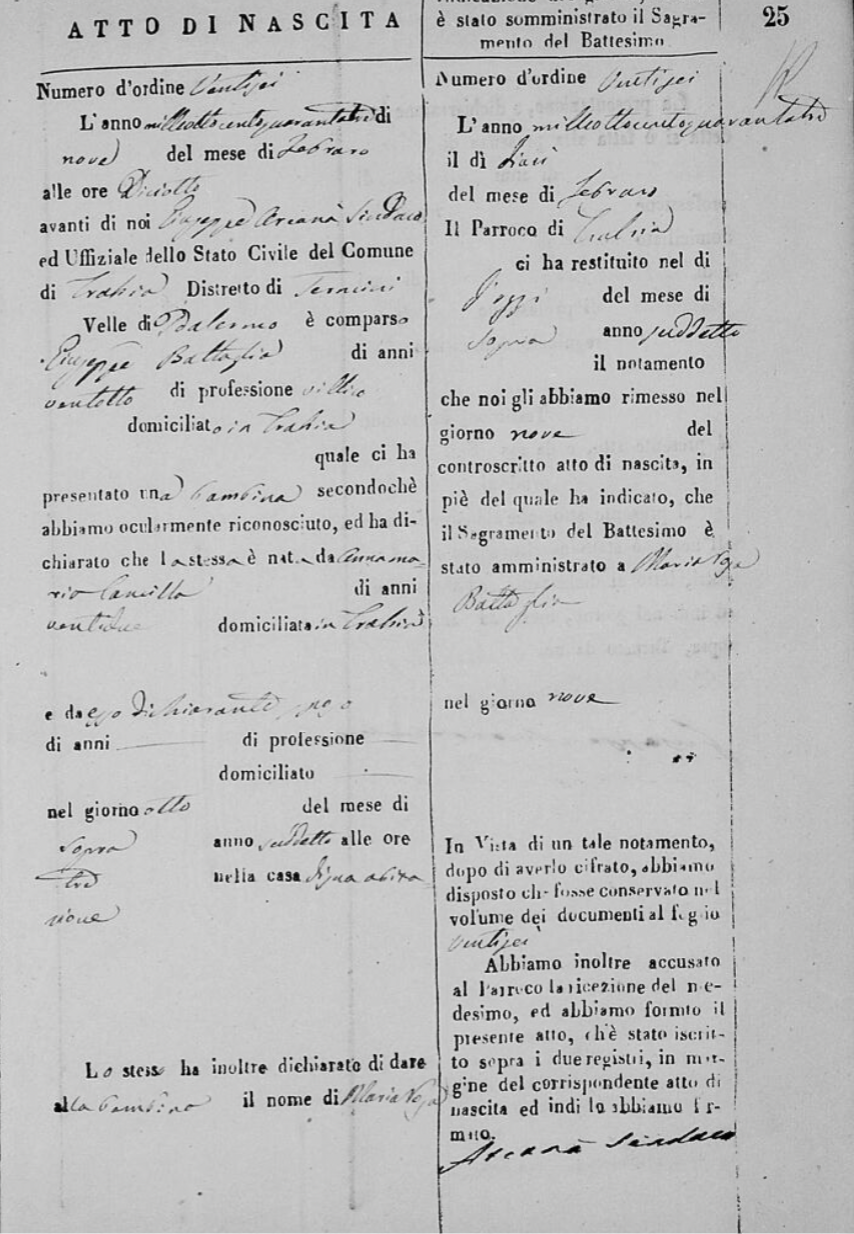 ATTO DI NASCITA
Numero d'ordine Ventisei
L'anno milleottocentoquarantatre di
nove del mese di Febraro
alle ore Diciotto
avanti di noi Giuseppe Arcanà Sindaco
ed Uffiziale dello Stato Civile del Comune
di Trabia Distretto di Termini
Valle di Palermo è comparso
Giuseppe Battaglia di anni
ventotto di professione villico
domiciliato in Trabia
quale ci ha
presentato una bambina secondochè
abbiamo ocularmente riconosciuto, ed ha di-
chiarato che la stessa è nata da Annama-
ria Cancilla di anni
ventidue domiciliata in Trabia
e da esso dichiarante
di anni di professione
domiciliato
nel giorno otto del mese di
sopra anno suddetto alle ore
tre nella casa di sua abita-
zione
Lo stesso ha inoltre dichiarato di dare
alla bambina il nome di Maria
è stato somministrato il Sagra-
mento del Battesimo
25
Numero d'ordine Ventisei
L'anno milleottocentoquarantatre
il dì Dieci
del mese di Febraro
Il Parroco di Trabia
ci ha restituito nel di
d'oggi del mese di
sopra anno suddetto
il notamento
che noi gli abbiamo rimesso nel
giorno nove del
controscritto atto di nascita, in
piè del quale ha indicato, che
il Sagramento del Battesimo è
stato amministrato a Maria
Battaglia
nel giorno nove
In Vista di un tale notamento,
dopo di averlo cifrato, abbiamo
disposto che fosse conservato nel
volume dei documenti al foglio
ventisei
Abbiamo inoltre accusato
al Parroco la ricezione del me-
desimo, ed abbiamo formto il
presente atto, ch'è stato iscrit-
to sopra i due registri, in mar-
gine del corrispondente atto di
nascita ed indi lo abbiamo fir-
mato.
Arcanà Sindaco